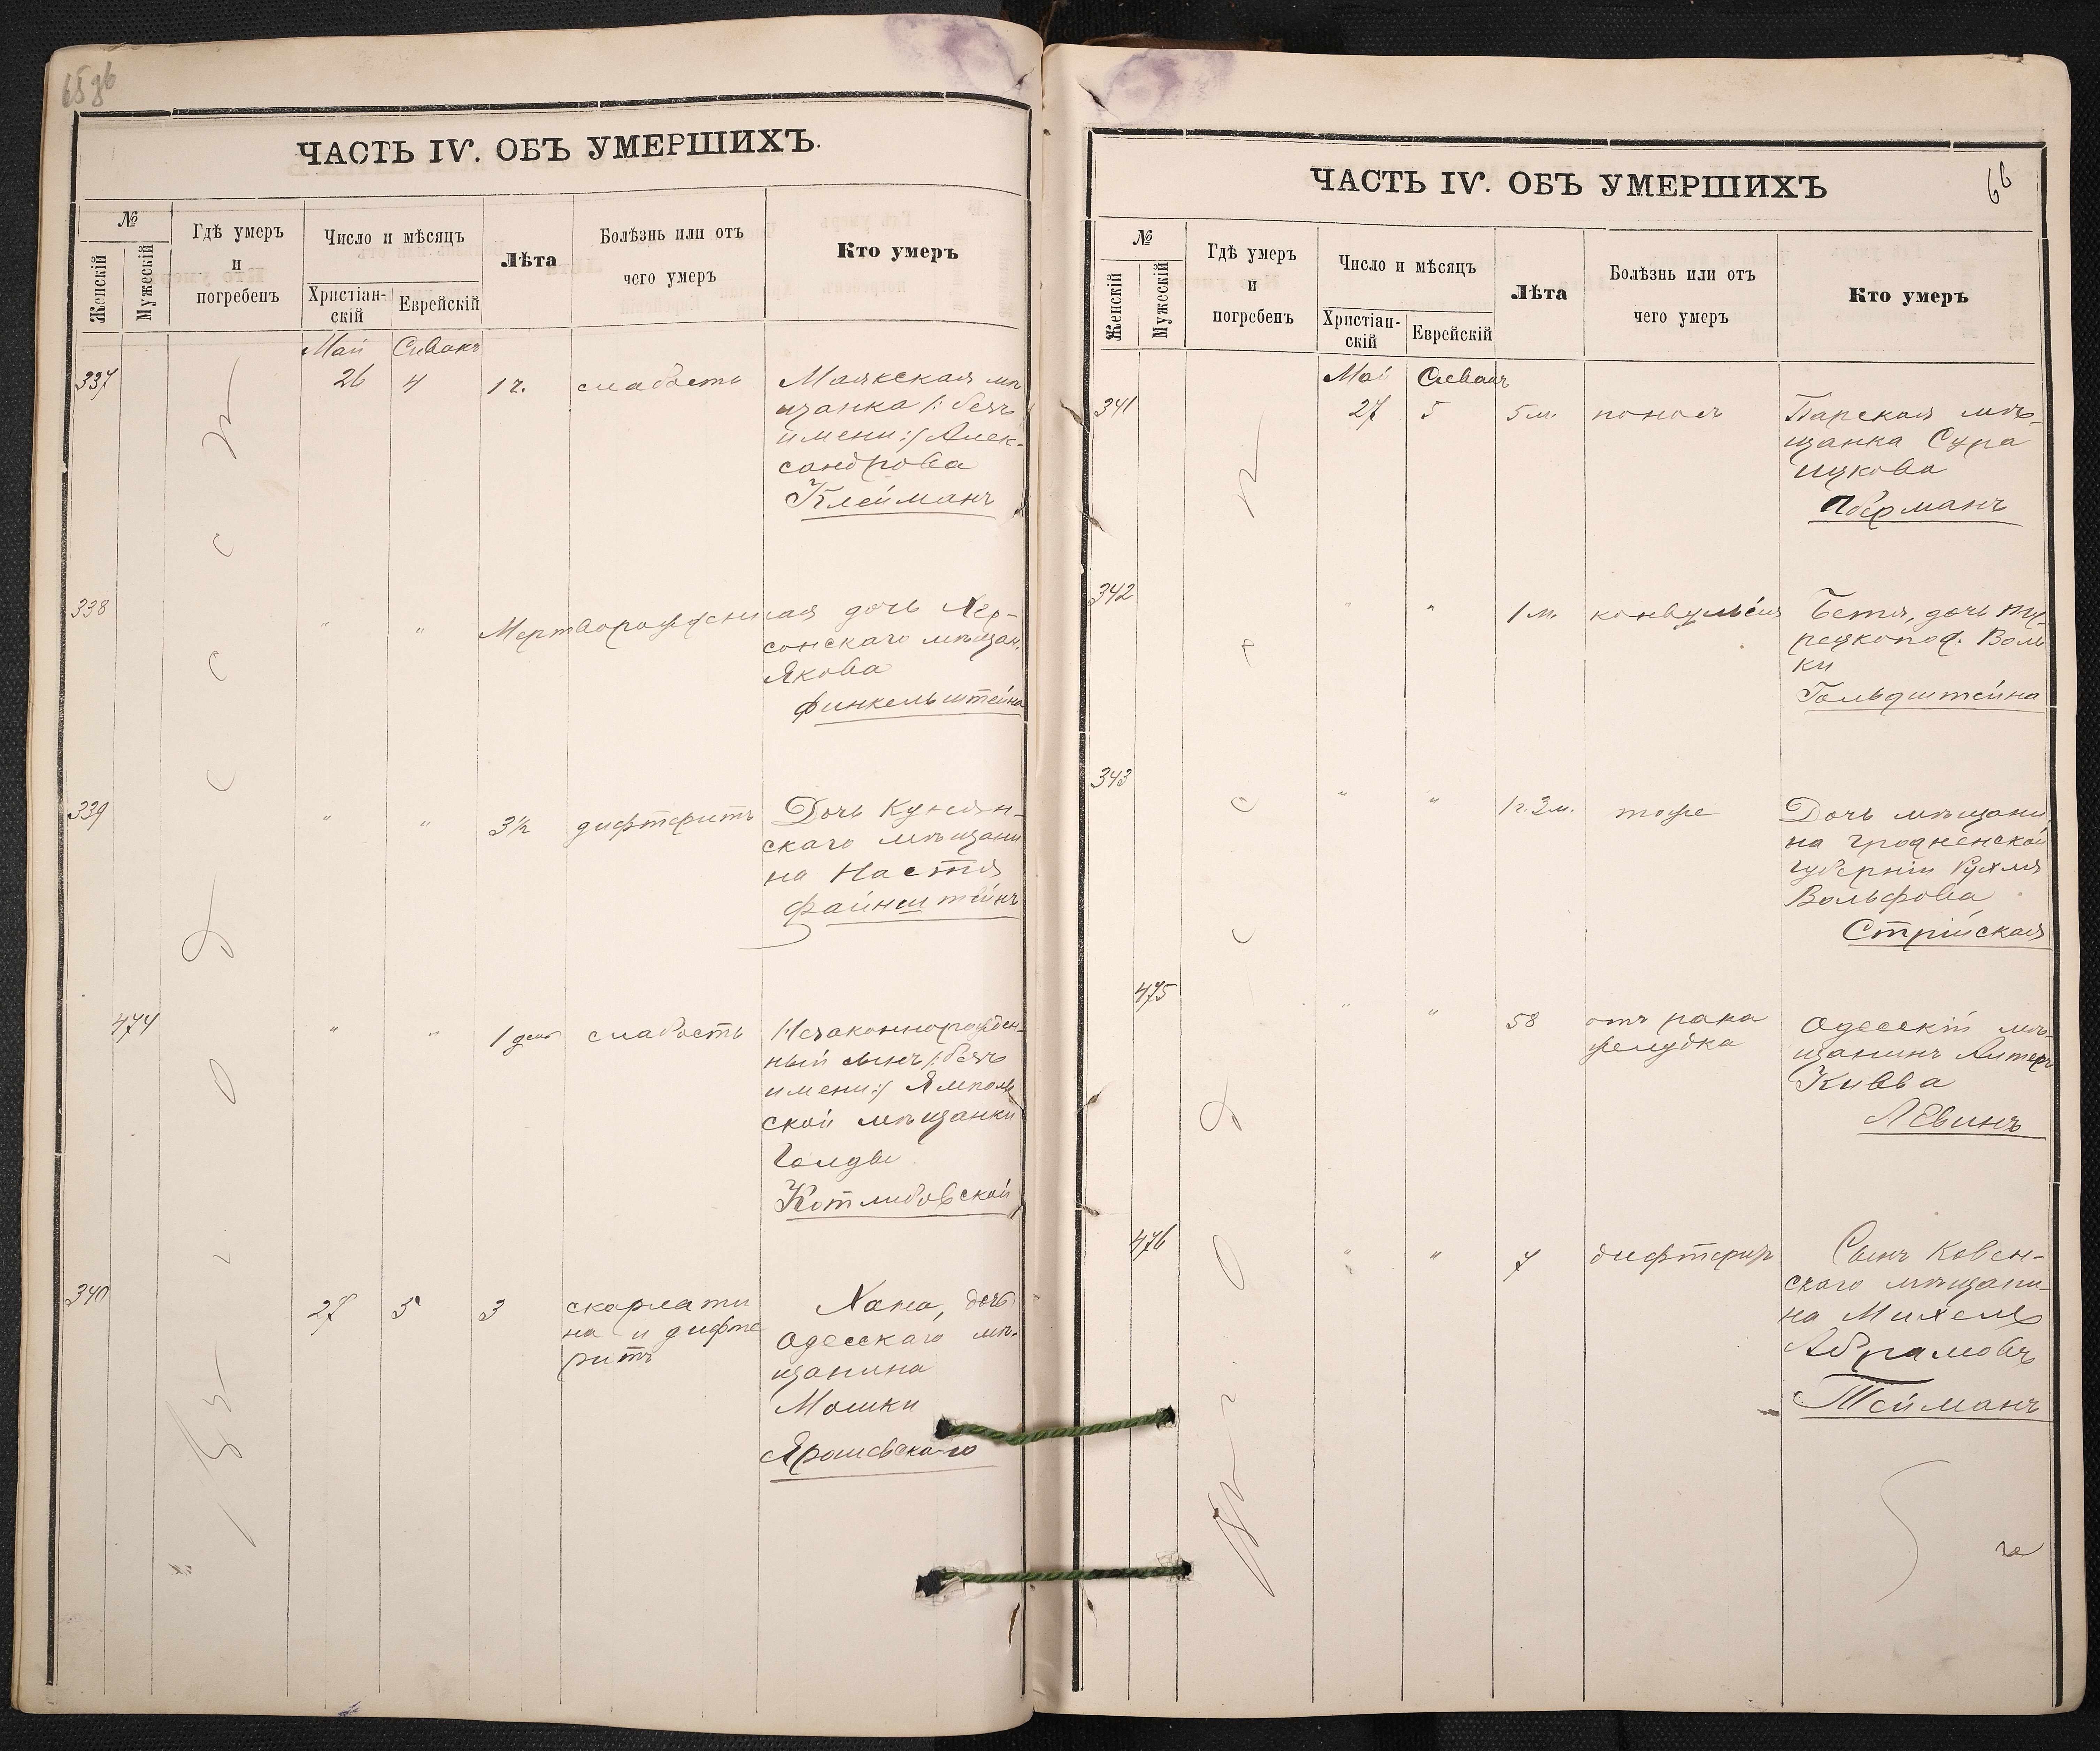 ЧАСТЬ IV. ОБЪ УМЕРШИХЪ.
№
Женскій
Мужескій
Гдѣ умеръ
и
погребенъ
Число и мѣсяцъ
Христіан-
скій
Еврейскій
Лѣта
Болѣзнь или отъ
чего умеръ
Кто умеръ
Май Сиванъ
337 26 4 1 г. слабость Маякская мѣ
щанка /: безъ
имени :/ Алек-
сандрова
Клейманъ
338 " " Мертворожденная дочь Хер-
сонскаго мѣщан.
Якова
Финкельштейна
339 " " 3½ дифтеритъ Дочь Купян-
скаго мѣщани
на Настя
Файнштейнъ
474 " " 1 день слабость Незаконнорожден-
ный сынъ /: безъ
имени :/ Ямполь
ской мѣщанки
Голды
Котлибовской
340 27 5 3 скарлати
на и дифте
ритъ
Хана, дочь
Одесскаго мѣ-
щанина
Мошки
Ярошевскаго
В ъ г. О д е с с ѣ
ЧАСТЬ IV. ОБЪ УМЕРШИХЪ
66
№
Женскій
Мужескій
Гдѣ умеръ
и
погребенъ
Число и мѣсяцъ
Христіан-
скій
Еврейскій
Лѣта
Болѣзнь или отъ
чего умеръ
Кто умеръ
Май Сиванъ
341 27 5 5 м. поносъ
мѣ-
щанка Сура
Ицкова
342 " " 1 м. конвульсія Бетя, дочь ту-
рецкопод. Воль
ки
Гольдштейна
343 " " 1 г. 3 м. тоже Дочь мѣщани
на Гродненской
губерніи Рухля
Вольфова
Стрійская
475 " " 58 отъ рака
желудка
Одесскій мѣ-
щанинъ Алтеръ
Кивва
Левинъ
476 " " 7 дифтерит Сынъ Ковен-
скаго мѣщани-
на Михель
Абрамовъ
Тейманъ
В ъ г. О д е с с ѣ